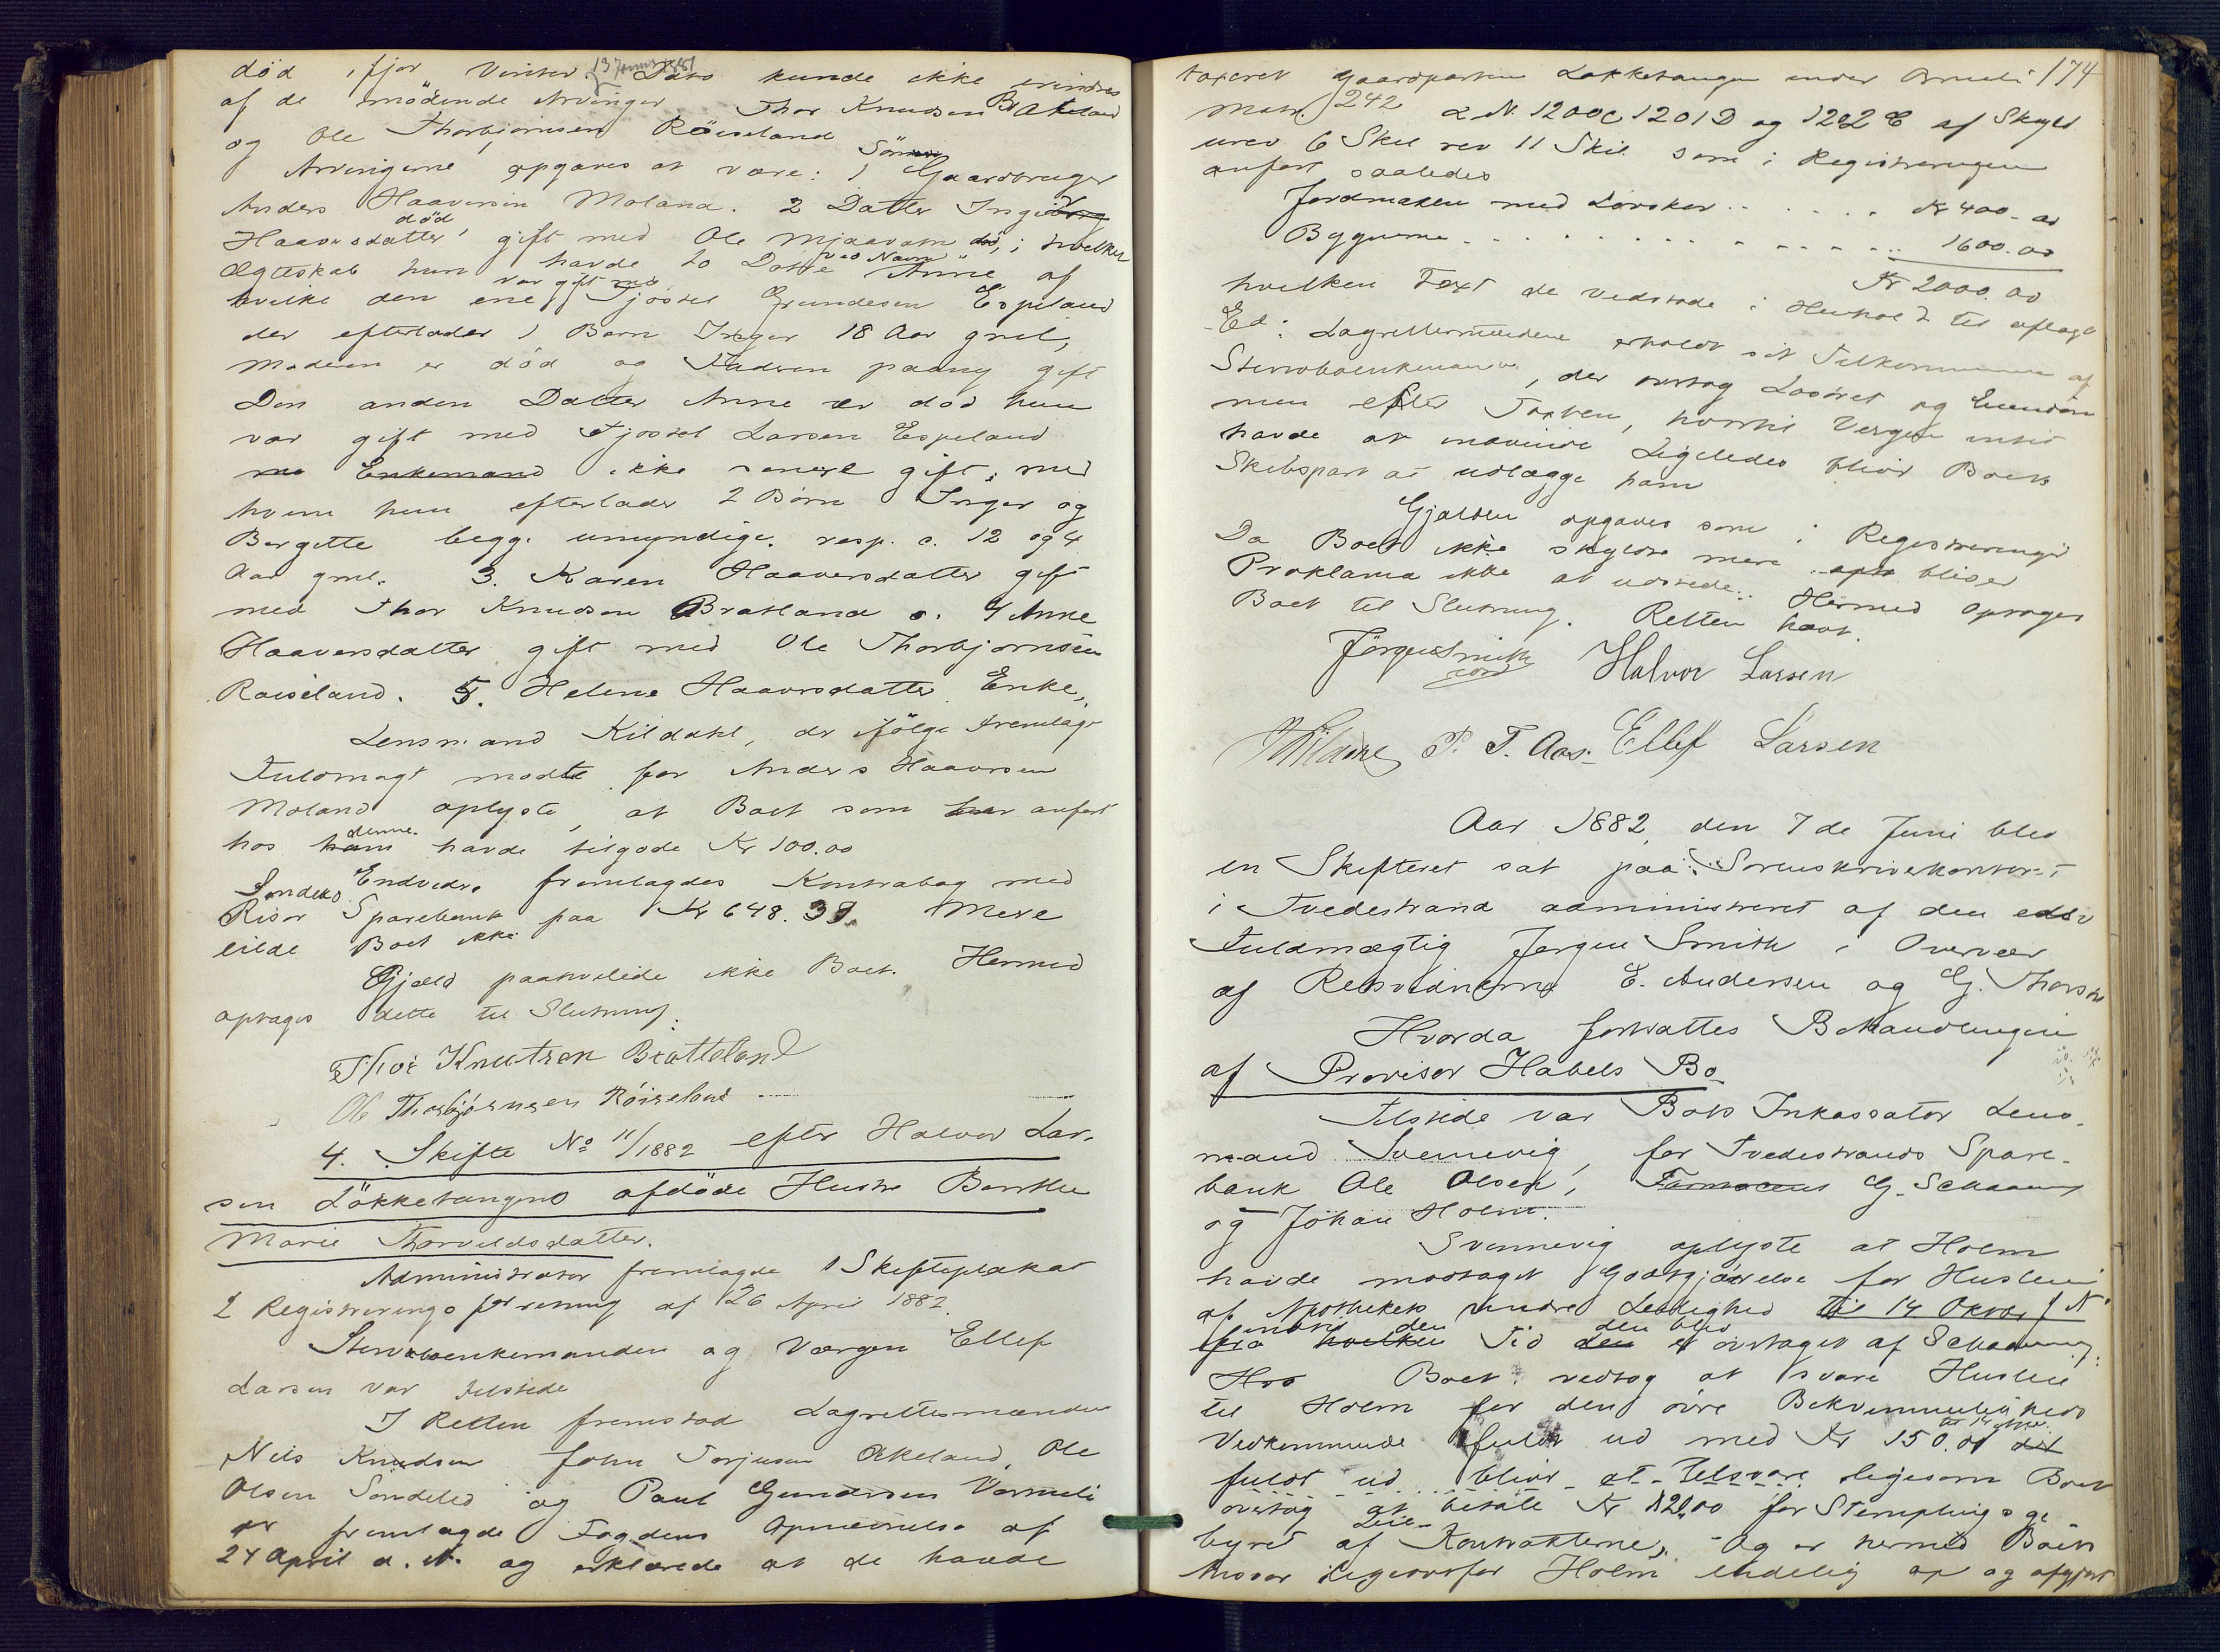 død i fjor Vinter. 13 Januar 1881 Dato kunde ikke erindres
af de mødende Arvinger Thor Knudsen Brateland
og Ole Thorbjørnsen Röiseland
Arvingerne opgaves at være: 1 Sönnen Gaardbruger
Anders Haaversen Moland. 2 Datter Ingeborg
Haaversdatter død, gift med Ole Mjaavatn død, i hvilket
Ægteskab hun havde to Døttre ved Navn Anne af
hvilke den ene var gift med Tjøstel Gundesen Espeland
der efterlader 1 Barn Inger 18 Aar gml,
Moderen er død og Faderen paany gift
Den anden Datter Anne er død hun
var gift med Tjøstel Larsen Espeland
nu Enkemand ikke senere gift; med
hvem hun efterlader 2 Børn Inger og
Bergitte begge umyndige. resp. c. 12 og 4
Aar gml. 3. Karen Haaversdatter gift
med Thor Knudsen Bratland o. 4 Anne
Haaversdatter gift med Ole Thorbjørnsen
Røiseland. 5. Helene Haaversdatter Enke,
Lensmand Kildahl, der ifölge fremlagt
Fuldmagt mødte for Anders Haaversen
Moland oplyste, at Boet som her anført
hos ham denne havde tilgode Kr 100.00
Endvidre fremlagdes Kontrabog med
Söndeleds Risør Sparebank paa Kr 648.38. Mere
eiede Boet ikke
Gjæld paahvilede ikke Boet. Hermed
optages dette til Slutning.
Thor Knutsen Bratteland
Ole Thorbjörnsen Röiseland
4. Skifte No 11/1882 efter Halvor Lar-
sen Lökketangens afdöde Hustru Berthe
Marie Thorvaldsdatter.
Administrator fremlagde 1 Skifteplakat
2 Registreringsforretning af 26 April 1882.
Stervboenkemanden og Værgen Ellef
Larsen var tilstede
I Retten fremstod Lagrettesmændene
Nils Knudsen John Torjusen Akeland, Ole
Olsen Söndeled og Paul Gundersen Varmeli
der fremlagde Fogdens Opnævnelse af
24 April d. A. og erklærede at de havde
taxeret Gaardparten Løkketangen under Arneli 174
Matr. 242 L N. 1200c 1201D og 1202E af Skyld
urev 6 Skil rev 11 Skil som i Registreringen
anført saaledes
Jordmaken med Lørsker . . . . . . Kr 400.00
Bygnerne . . . . . . . . . . . . 1600.00
Kr 2000.00
hvilken Taxt de vedstode i Henhold til aflagt
Ed: Lagrettesmændene erholdt sit Tilkommende af
Stervboenkemanden, der overtog Løsøret og Eiendom
men efter Taxten, hvortil Vergen intet
havde at indvende Ligeledes bliver Boets
Skibspart at udlægge ham
Gjælden opgaves som i Registreringen
Da Boet ikke skyldte mere opt bliver
Proklama ikke at udstede. Hermed optoges
Boet til Slutning. Retten hævt.
Jörgen Smith
const
Halvor Larsen
P. T. Aas. Ellef Larsen
Aar 1882 den 7de Juni blev
en Skifteret sat paa Sorenskriverkontoret
i Tvedestrand administreret af den edsv
Fuldmægtig Jørgen Smith i Overvær
af Retsvidnerne E. Andersen og G. Thorsen
Hvorda fortsattes Behandlingen
af Provisor Habels Bo
Tilstede var Boets Inkassator Lens-
mand Svennevig, for Tvedestrands Spare-
bank Ole Olsen, Farmaceut G. Schaaning
og Johan Holm.
Svennevig oplyste at Holm
havde modtaget Godtgjørelse for Husleie
af Apotheket under Ledighed til 14 Oktbr f A
fra indtil hvilken den Tid den den blev er overtaget af Schaaning.
Hvo Boet vedtog at svare Husleie
til Holm for den øvre Bekvemmeligheds
Vedkommende fuldt ud med Kr 150.00 det
fuldt ud bliver at tilsvare ligesom Boet
overtog at betale Kr 12.00 for Stemplingsge-
byret af Leie-Kontrakterne, Og er hermed Boets
Ansvar ligeoverfor Holm endelig op og afgjort